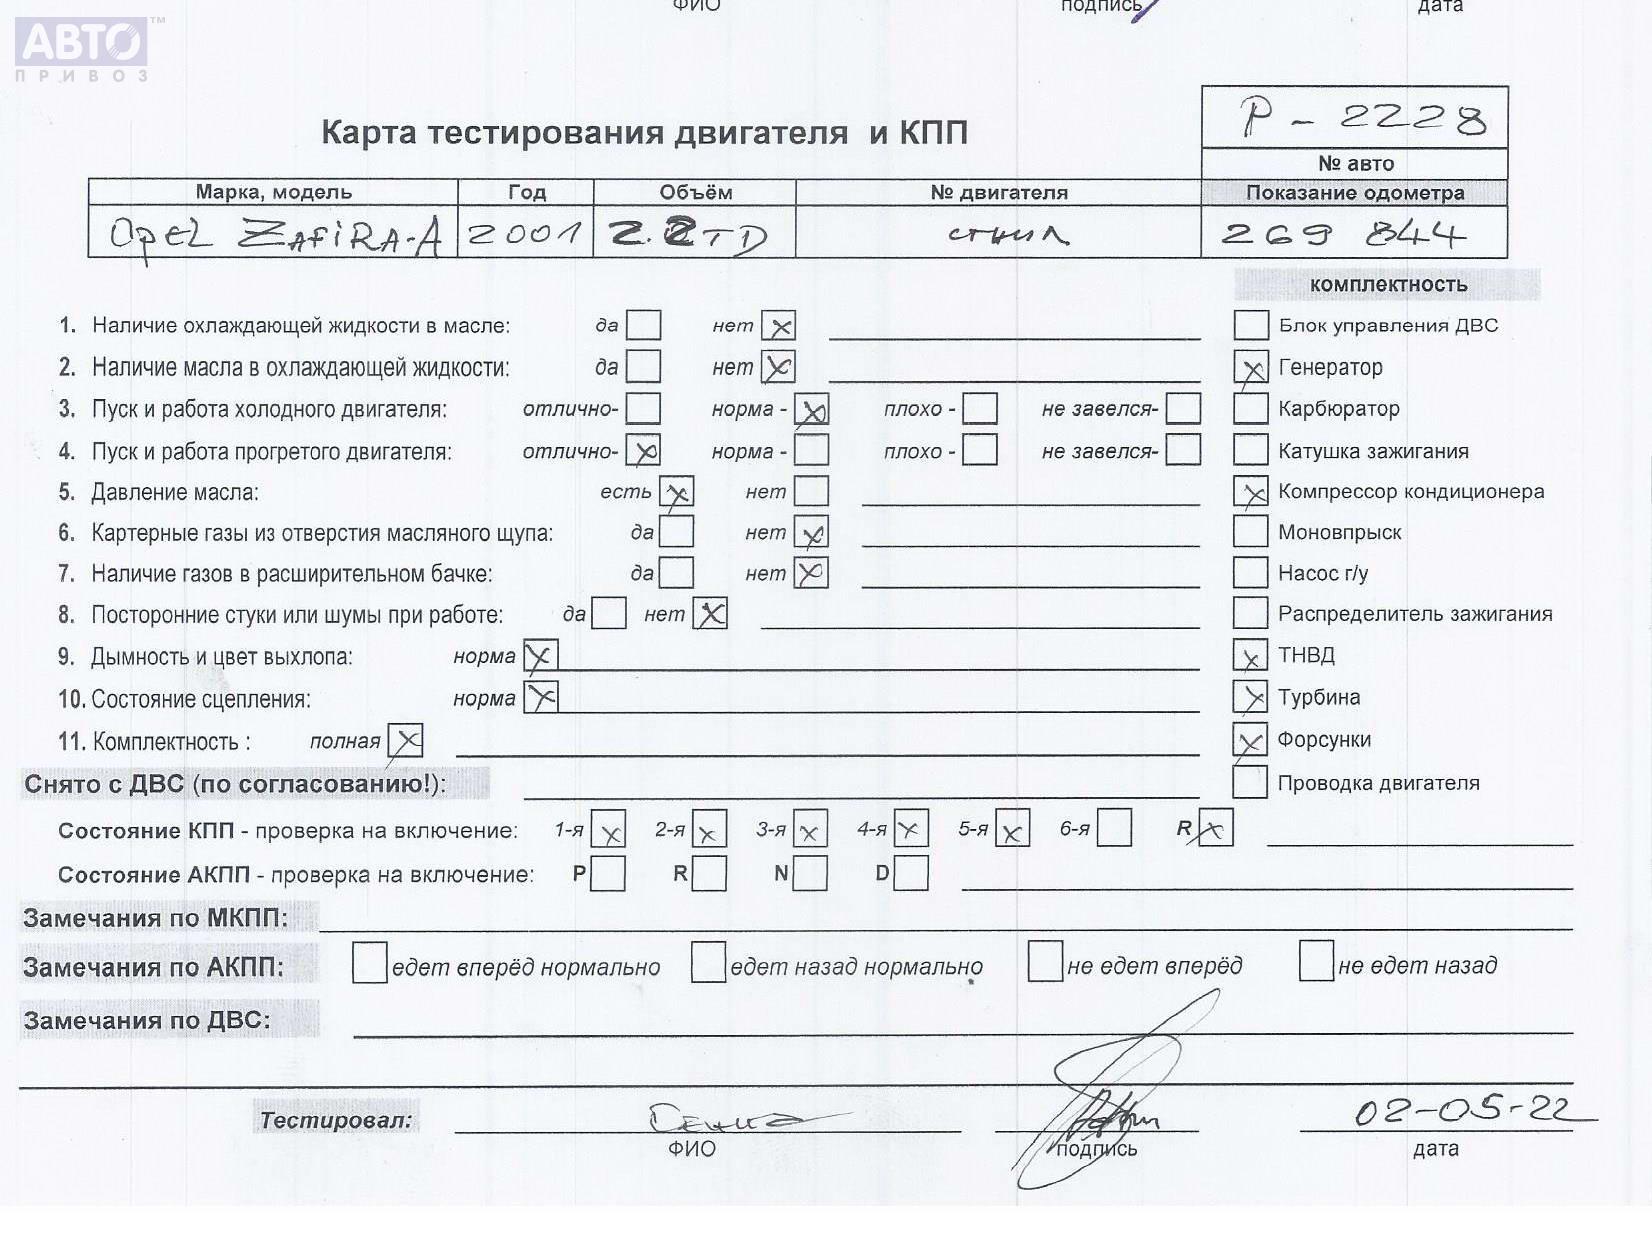 АВТО™
ПРИВОЗ
ФИО подпись дата
Р - 2228
Карта тестирования двигателя и КПП
№ авто
Марка, модель Год Объём № двигателя Показание одометра
Opel Zafira-A 2001 2.2TD сгнил 269 844
комплектность
1. Наличие охлаждающей жидкости в масле: да нет x Блок управления ДВС
2. Наличие масла в охлаждающей жидкости: да нет x x Генератор
3. Пуск и работа холодного двигателя: отлично- норма - x плохо - не завелся- Карбюратор
4. Пуск и работа прогретого двигателя: отлично- x норма - плохо - не завелся- Катушка зажигания
5. Давление масла: есть x нет x Компрессор кондиционера
6. Картерные газы из отверстия масляного щупа: да нет x Моновпрыск
7. Наличие газов в расширительном бачке: да нет x Насос г/у
8. Посторонние стуки или шумы при работе: да нет x Распределитель зажигания
9. Дымность и цвет выхлопа: норма x x ТНВД
10. Состояние сцепления: норма x x Турбина
11. Комплектность : полная x x Форсунки
Снято с ДВС (по согласованию!): Проводка двигателя
Состояние КПП - проверка на включение: 1-я x 2-я x 3-я x 4-я x 5-я x 6-я R x
Состояние АКПП - проверка на включение: P R N D
Замечания по МКПП:
Замечания по АКПП: едет вперёд нормально едет назад нормально не едет вперёд не едет назад
Замечания по ДВС:
Тестировал: 02-05-22
ФИО подпись дата